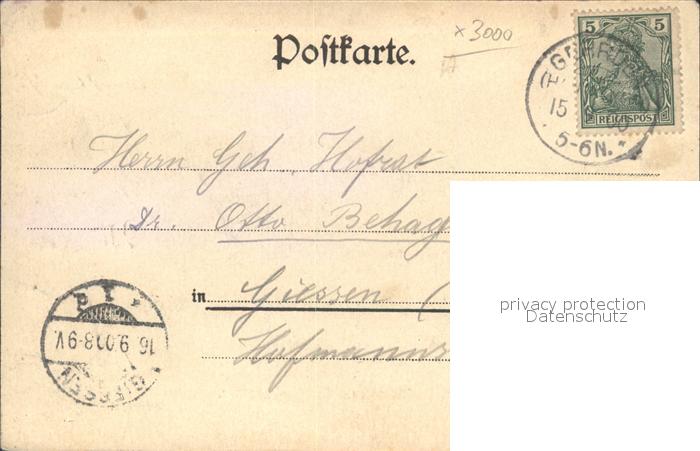 Postkarte.
x 3000
5 5
REICHSPOST
15
5-6N.
Herrn Geh. Hofrat
Dr. Otto Behag
in Giessen (
Hofmanns
16.9.00.8-9V.
GIESSEN
privacy protection
Datenschutz